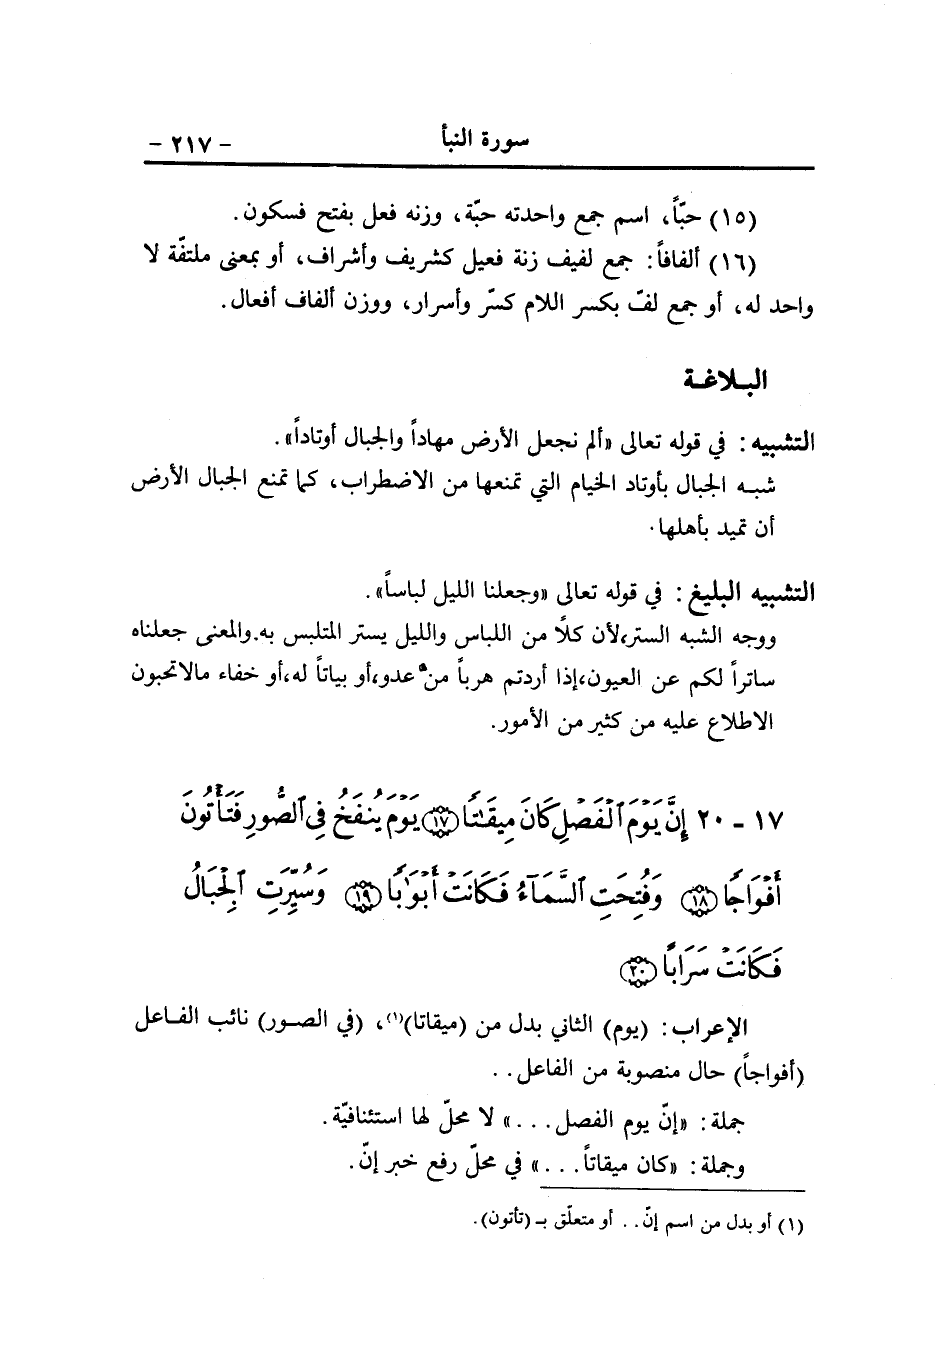 سورة النبأ
- ٢١٧ -
(١٥) حبّاً، اسم جمع واحدته حبّة، وزنه فعل بفتح فسكون.
(١٦) ألفافاً: جمع لفيف زنة فعيل كشريف وأشراف، أو بمعنى ملتفّة لا
واحد له، أو جمع لفّ بكسر اللام كسرّ وأسرار، ووزن ألفاف أفعال.
البـلاغـة
التشبيه: في قوله تعالى «ألم نجعل الأرض مهاداً والجبال أوتاداً».
شبـه الجبال بأوتاد الخيام التي تمنعها من الاضطراب، كما تمنع الجبال الأرض
أن تميد بأهلها.
التشبيه البليغ: في قوله تعالى «وجعلنا الليل لباساً».
ووجه الشبه الستر،لأن كلاًّ من اللباس والليل يستر المتلبس به.والمعنى جعلناه
ساتراً لكم عن العيون،إذا أردتم هرباً من عدو،أو بياتاً له،أو خفاء مالاتحبون
الاطلاع عليه من كثير من الأمور.
١٧ - ٢٠ إِنَّ يَوْمَ ٱلْفَصْلِ كَانَ مِيقَٰتًا ١٧ يَوْمَ يُنفَخُ فِى ٱلصُّورِ فَتَأْتُونَ
أَفْوَاجًا ١٨ وَفُتِحَتِ ٱلسَّمَآءُ فَكَانَتْ أَبْوَٰبًا ١٩ وَسُيِّرَتِ ٱلْجِبَالُ
فَكَانَتْ سَرَابًا ٢٠
الإعراب: (يوم) الثاني بدل من (ميقاتا)(١)، (في الصـور) نائب الفـاعل
(أفواجاً) حال منصوبة من الفاعل. .
جملة: «إنّ يوم الفصل. . .» لا محلّ لها استئنافيّة.
وجملة: «كان ميقاتاً. . .» في محلّ رفع خبر إنّ.
(١) أو بدل من اسم إنّ. . أو متعلّق بـ (تأتون).